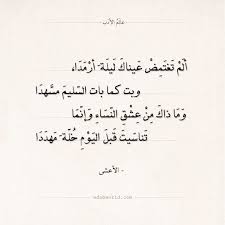 عالم الأدب
ألم تغتمض عيناك ليلة أرمدا،
وبت كما بات السليم مسهدا
وما ذاك من عشق النساء وإنما
تناسيت قبل اليوم خلة مهددا
- الأعشى
adabworld.com